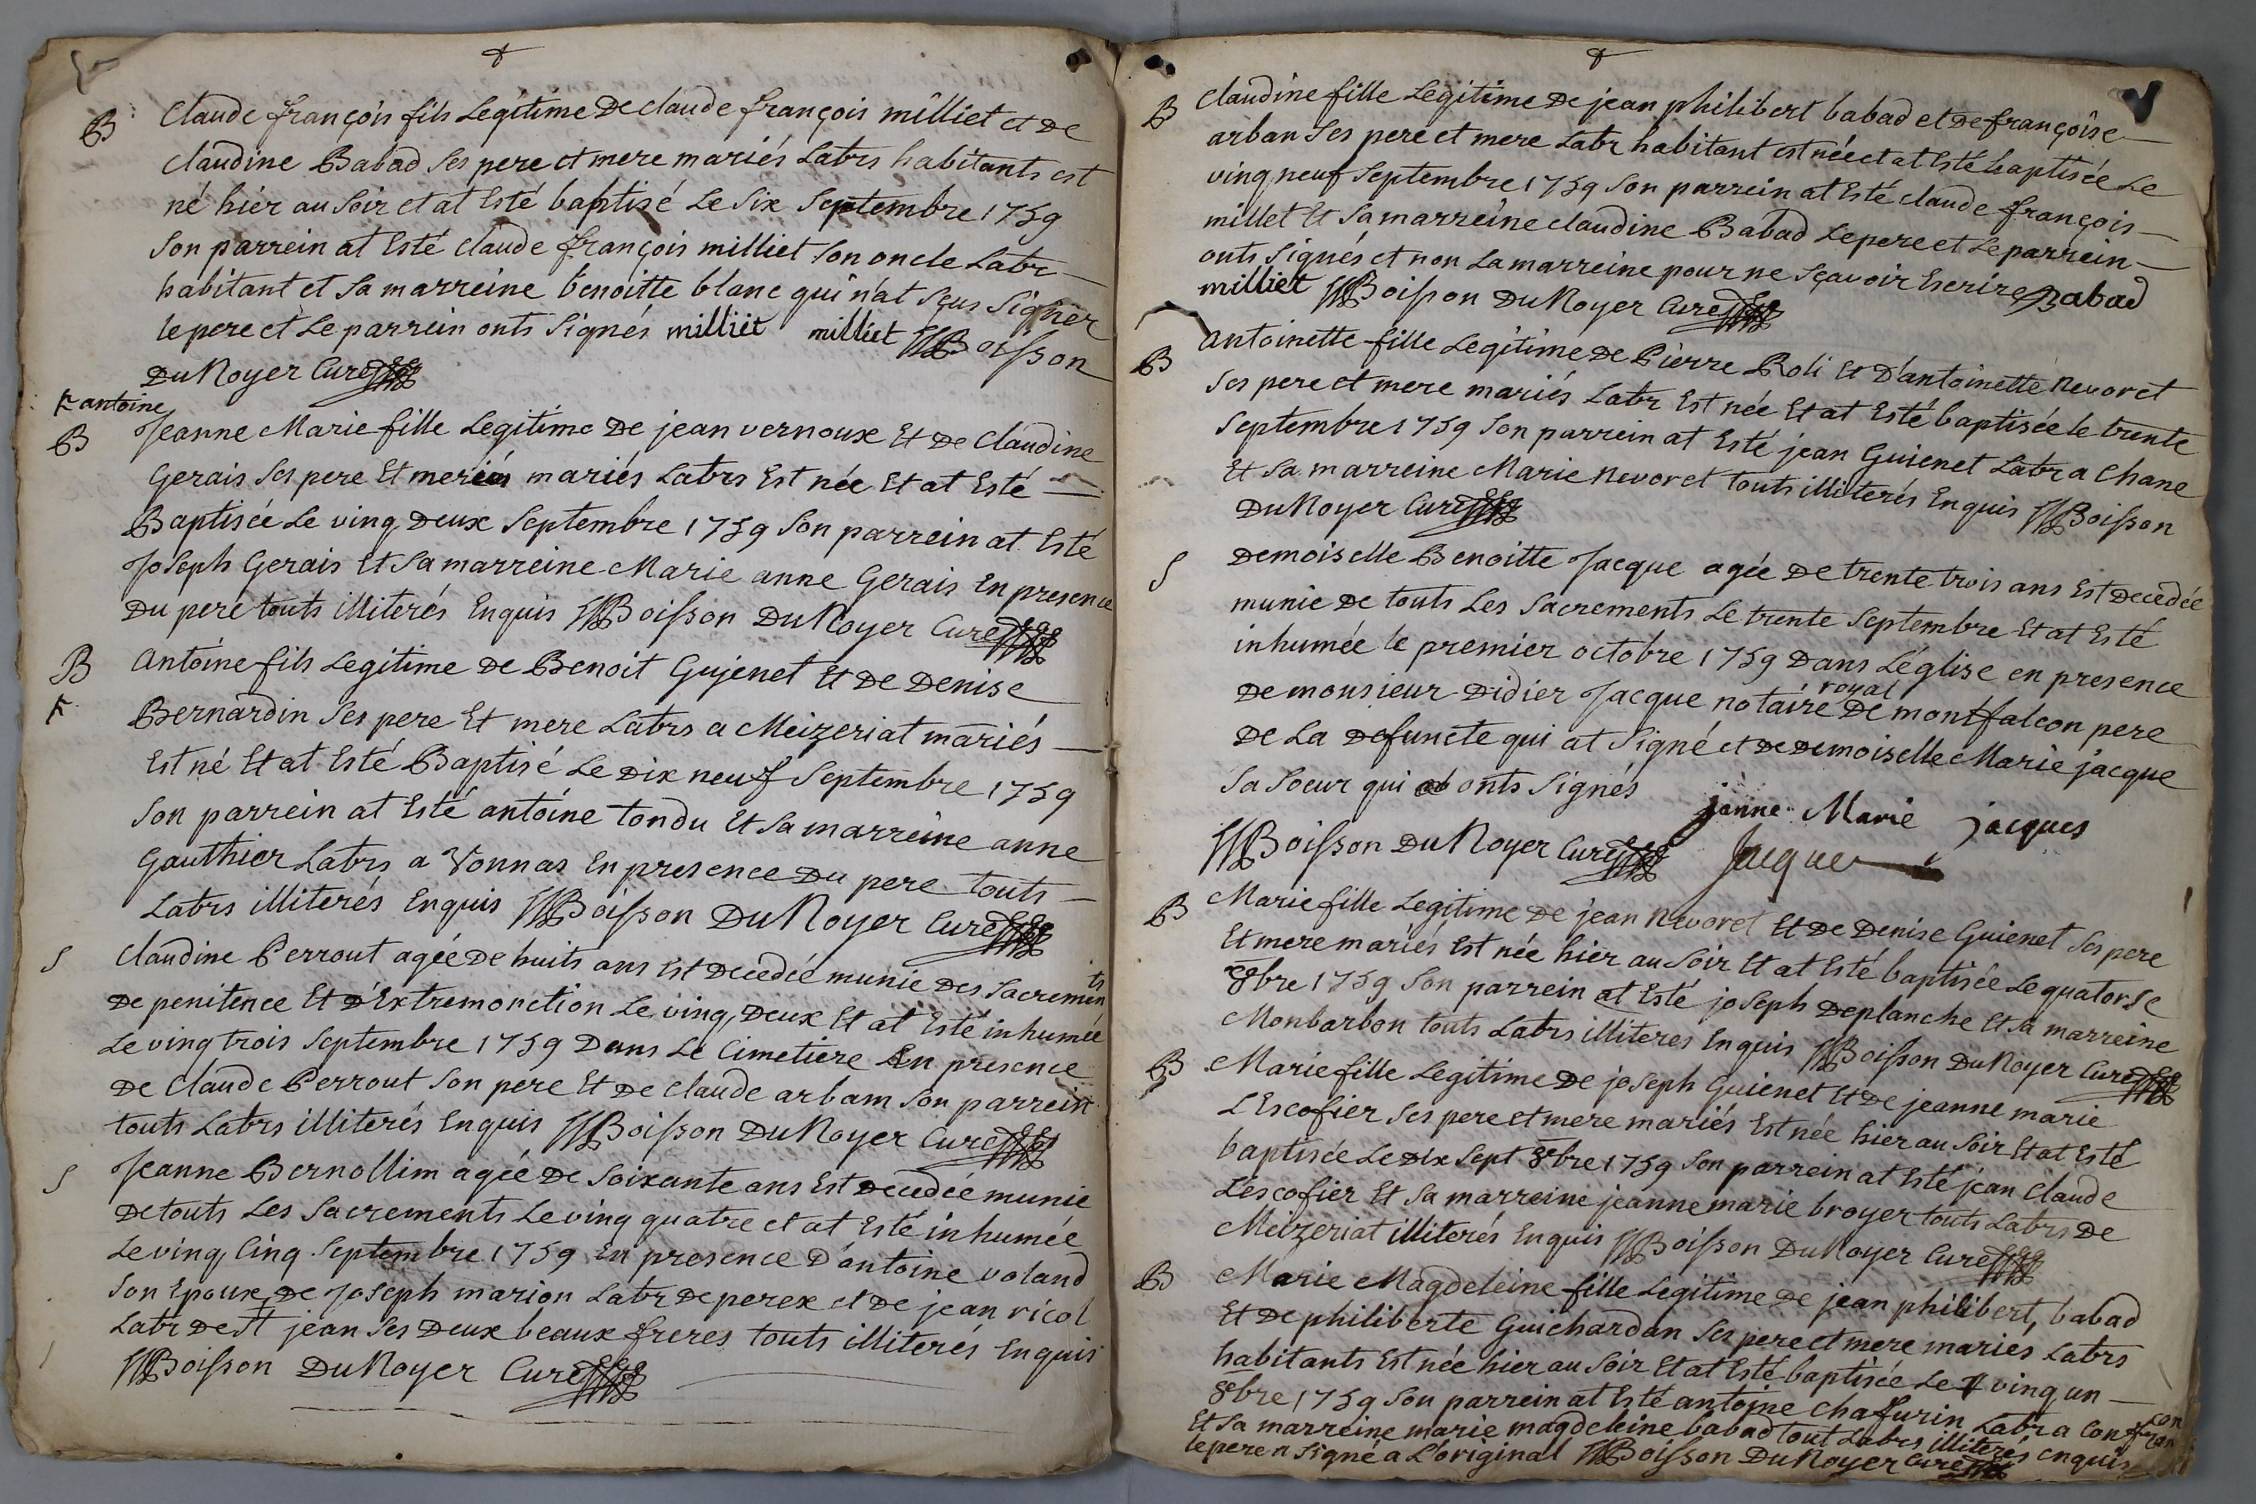 B Claude françois fils Legitime De claude françois milliet et de
claudine Babad ses pere et mere mariés Labrs habitants est
né hier au soir et at Esté baptisé Le six Septembre 1759
Son parrein at Esté claude françois milliet son oncle Labr
habitant et sa marreine benoitte blanc qui n'at sçus signer
le pere et Le parrein onts signés milliet milliet Boisson
Du Noyer Curé
F antoine
B Jeanne Marie fille Legitime De jean vernoux Et De Claudine
Gerais ses pere Et mere mariés Labrs Est née Et at Esté
Baptisée Le ving Deux Septembre 1759 Son parrein at Esté
Joseph Gerais Et sa marreine Marie anne Gerais En presence
Du pere touts illiterés Enquis Boisson Du Noyer Curé
B Antoine fils Legitime De Benoit Gujenet Et De Denise
F Bernardin ses pere Et mere Labrs a Meizeriat mariés
Est né Et at Esté Baptisé Le Dix neuf Septembre 1759
Son parrein at Esté antoine tondu Et sa marreine anne
Gauthier Labrs a Vonnas En presence Du pere touts
Labrs illiterés Enquis Boisson Du Noyer Curé
S Claudine Perrout agée De huits ans Est Decedée munie Des sacrements
De penitence Et D'Extremonction Le ving Deux Et at Esté inhumée
Le ving trois Septembre 1759 Dans Le Cimetiere En presence
De Claude Perrout son pere Et De claude arbam son parrein
touts Labrs illiterés Enquis Boisson Du Noyer Curé
S Jeanne Bernollim agée De soixante ans Est Decedée munie
De touts Les sacrements Le ving quatre et at Esté inhumée
Le ving Cinq Septembre 1759 En presence D'antoine voland
Son Epoux De Joseph marion Labr De perex et De jean ricol
Labr De St jean ses Deux beaux freres touts illiterés Enquis
Boisson Du Noyer Curé
B Claudine fille Legitime De jean philibert babad et De françoise
arban ses pere et mere Labr habitant est née et at Esté baptisée Le
ving neuf Septembre 1759 Son parrein at Esté claude françois
millet Et sa marreine claudine Babad Le pere et Le parrein
onts signés et non La marreine pour ne sçavoir Ecrire Babad
milliet Boisson Du Noyer Curé
B Antoinette fille Legitime De Pierre Roli Et D'antoinette Nevoret
ses pere et mere mariés Labr Est née Et at Esté baptisée le trente
Septembre 1759 Son parrein at Esté jean Guienet Labr a Chane
Et sa marreine Marie Nevoret touts illiterés Enquis Boisson
Du Noyer Curé
S Demoiselle Benoitte Jacque agée De trente trois ans Est Decedée
munie De touts Les sacrements Le trente Septembre Et at Esté
inhumée le premier octobre 1759 Dans L'église en presence
De monsieur Didier Jacque notaire royal De montfalcon pere
De La Defuncte qui at signé et De Demoiselle Marie jacque
sa soeur qui onts signés
janne Marie jacques
Boisson Du Noyer Curé Jacque
B Marie fille Legitime De jean Nevoret Et De Denise Guienet ses pere
Et mere mariés Est née hier au soir Et at Esté baptisée Le quatorse
8bre 1759 Son parrein at Esté joseph Deplanche Et sa marreine
Monbarbon touts Labrs illiteres Enquis Boisson Du Noyer Curé
B Marie fille Legitime De joseph Guienet Et De jeanne marie
L'Escofier ses pere et mere mariés Est née hier au soir Et at Esté
baptisée Le Dix sept 8bre 1759 Son parrein at Esté jean Claude
L'escofier Et sa marreine jeanne marie broyer touts Labrs De
Meizeriat illiterés Enquis Boisson Du Noyer Curé
B Marie Magdeleine fille Legitime De jean philibert babad
Et De philiberte Guichardan ses pere et mere mariés Labrs
habitants Est née hier au soir Et at Esté baptisée Le ving un
8bre 1759 Son parrein at Esté antoine chafurin Labr a Confrancon
Et sa marreine marie magdeleine babad tout Labrs illiterés enquis
le pere a signé a L'original Boisson Du Noyer Curé